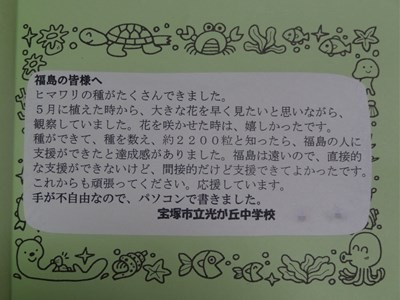 福島の皆様へ
ヒマワリの種がたくさんできました。
5月に植えた時から、大きな花を早く見たいと思いながら、
観察していました。花を咲かせた時は、嬉しかったです。
種ができて、種を数え、約2200粒と知ったら、福島の人に
支援ができたと達成感がありました。福島は遠いので、直接的
な支援ができないけど、間接的だけど支援できてよかったです。
これからも頑張ってください。応援しています。
手が不自由なので、パソコンで書きました。
宝塚市立光が丘中学校